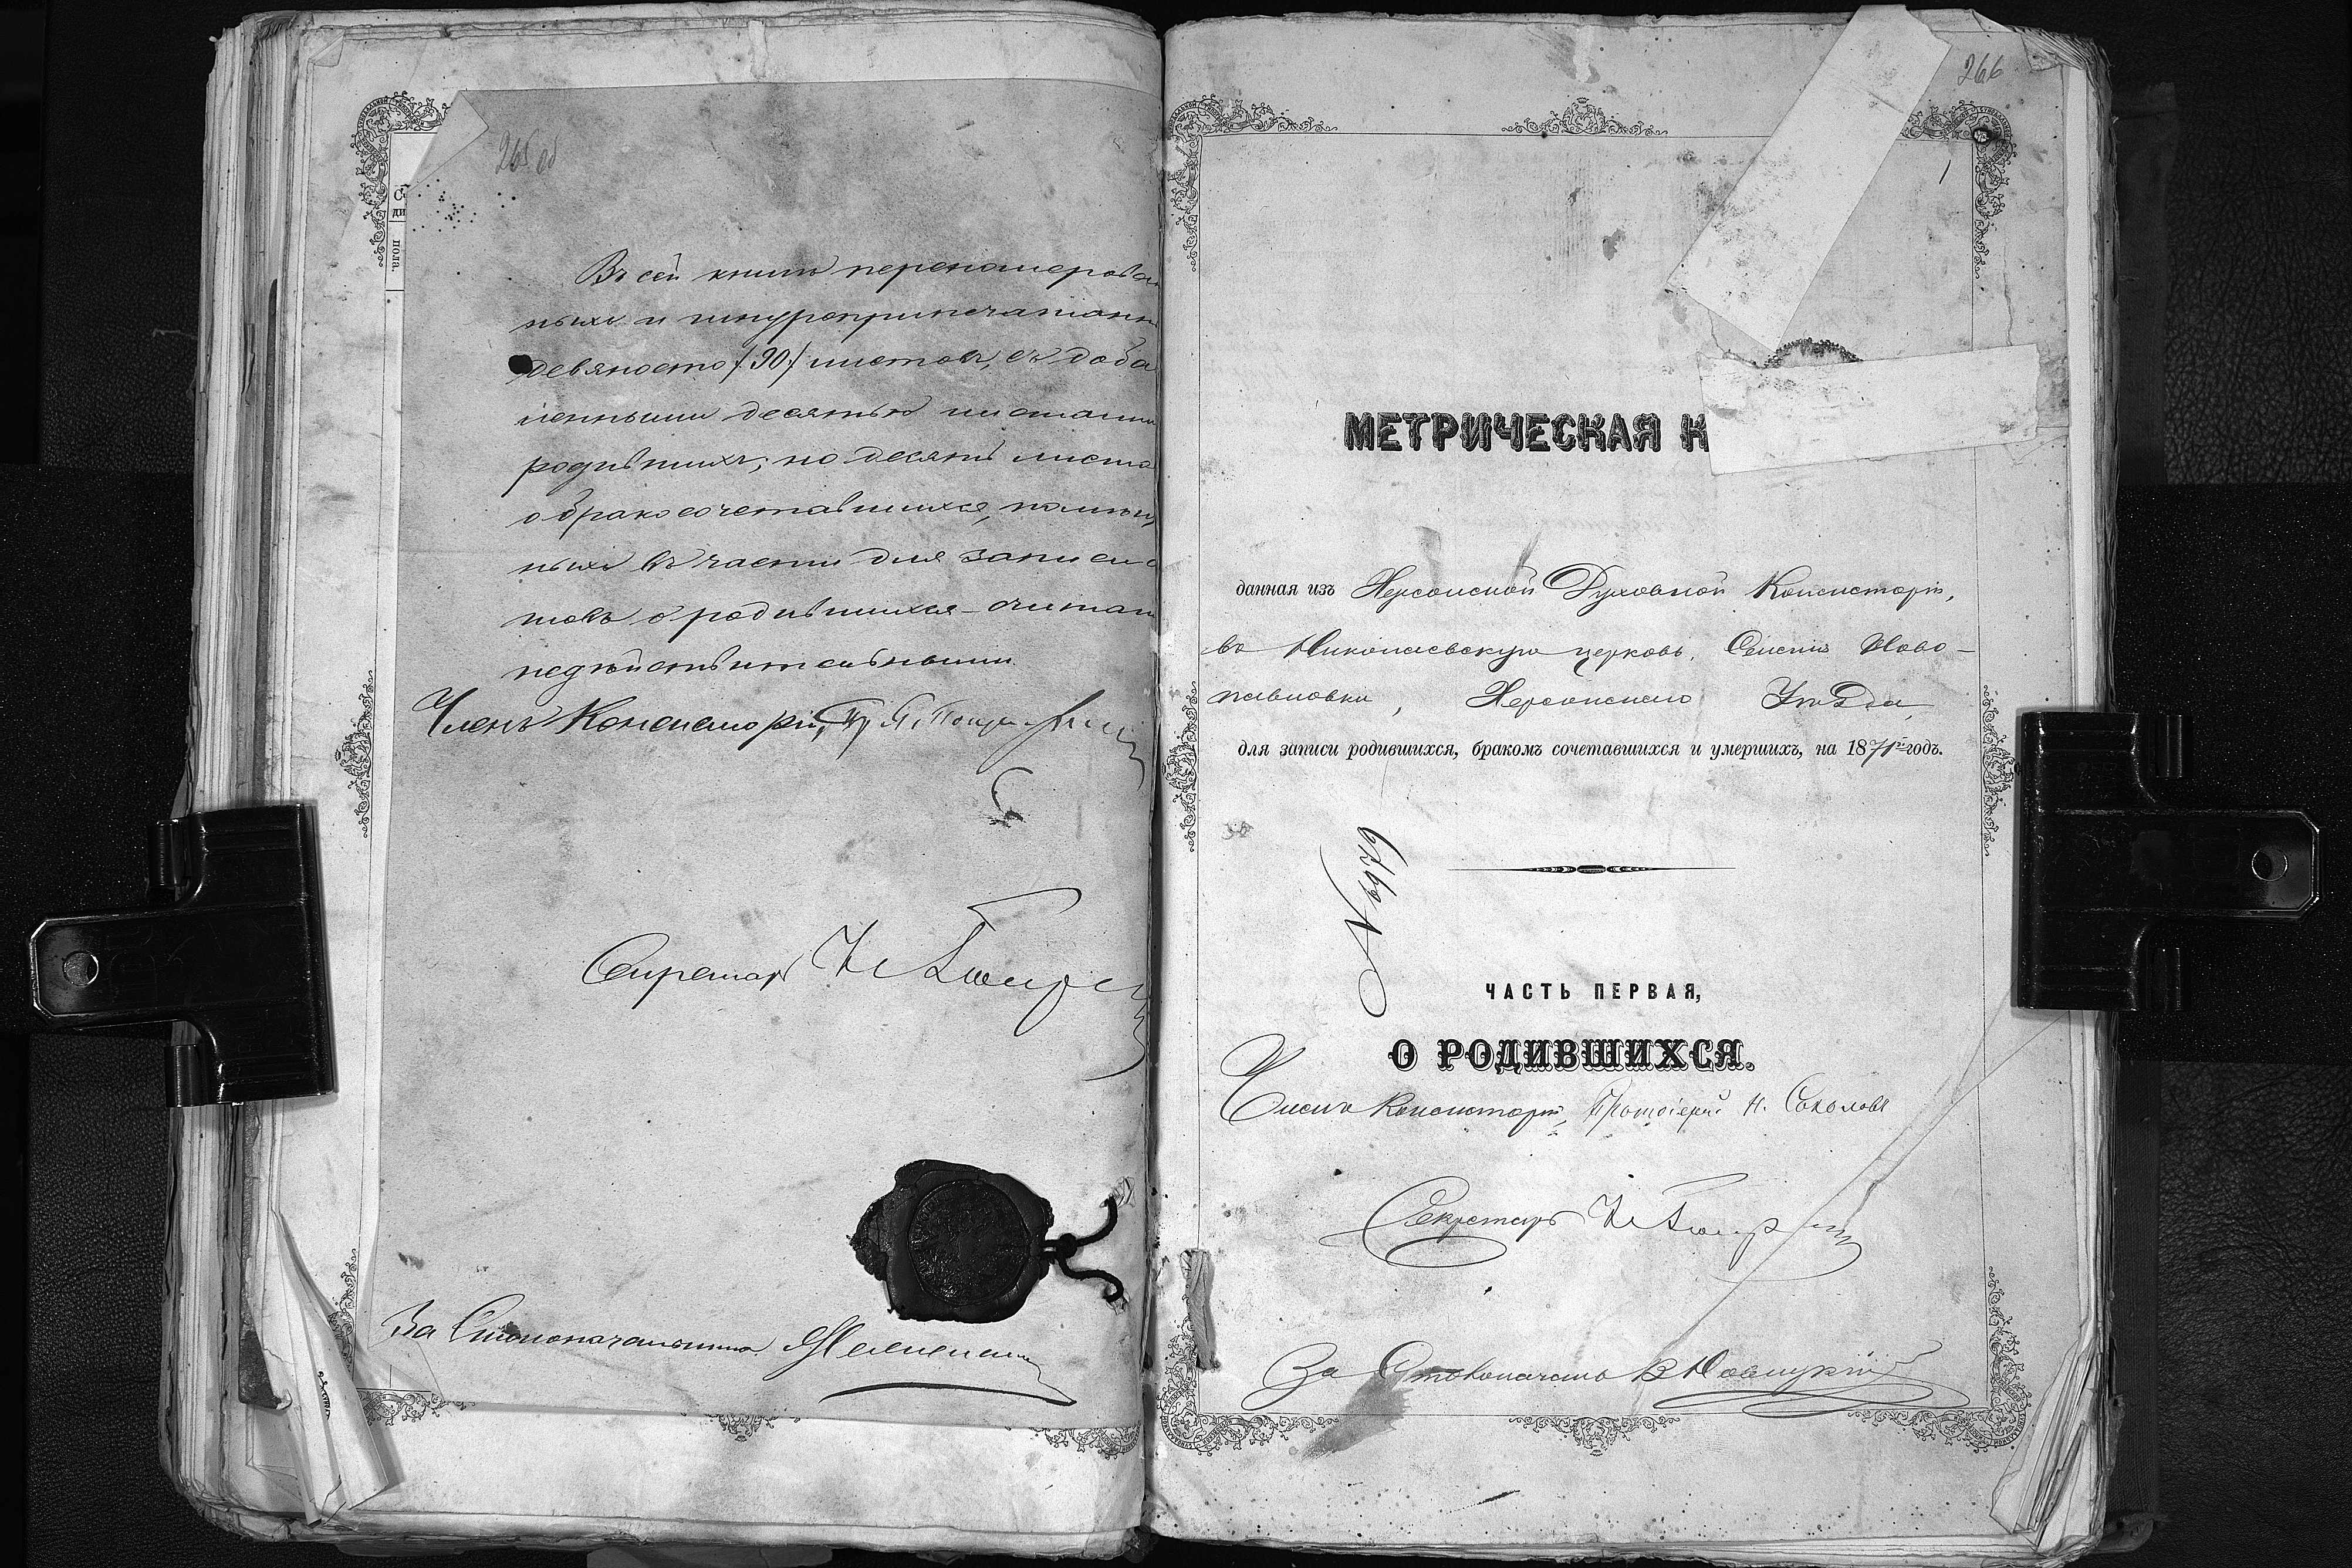 265 об
Въ сей книгѣ перенумерован
ныхъ и шнуроприпечатанн
девяносто /90/ листовъ, съ доба
ленными десятью листами
родившихъ; но десять листо
о бракосочетавшихся,
ныхъ въ части для записи
товъ о родившихся считат
недѣйствительными
Членъ Консисторіи, Пр.
Секретарь
За Столоначальника
С
ди
пола.
266
1
МЕТРИЧЕСКАЯ К
данная изъ Херсонской Духовной Консисторіи,
въ Николаевскую церковь, Селенія Ново-
павловки, Херсонскаго Уѣзда,
для записи родившихся, бракомъ сочетавшихся и умершихъ, на 1871й годъ.
N 6979
ЧАСТЬ ПЕРВАЯ,
О РОДИВШИХСЯ.
Членъ Консисторіи, Протоіерей Н. Соколовъ
Секретарь
За Столоначальн. В Новицкій